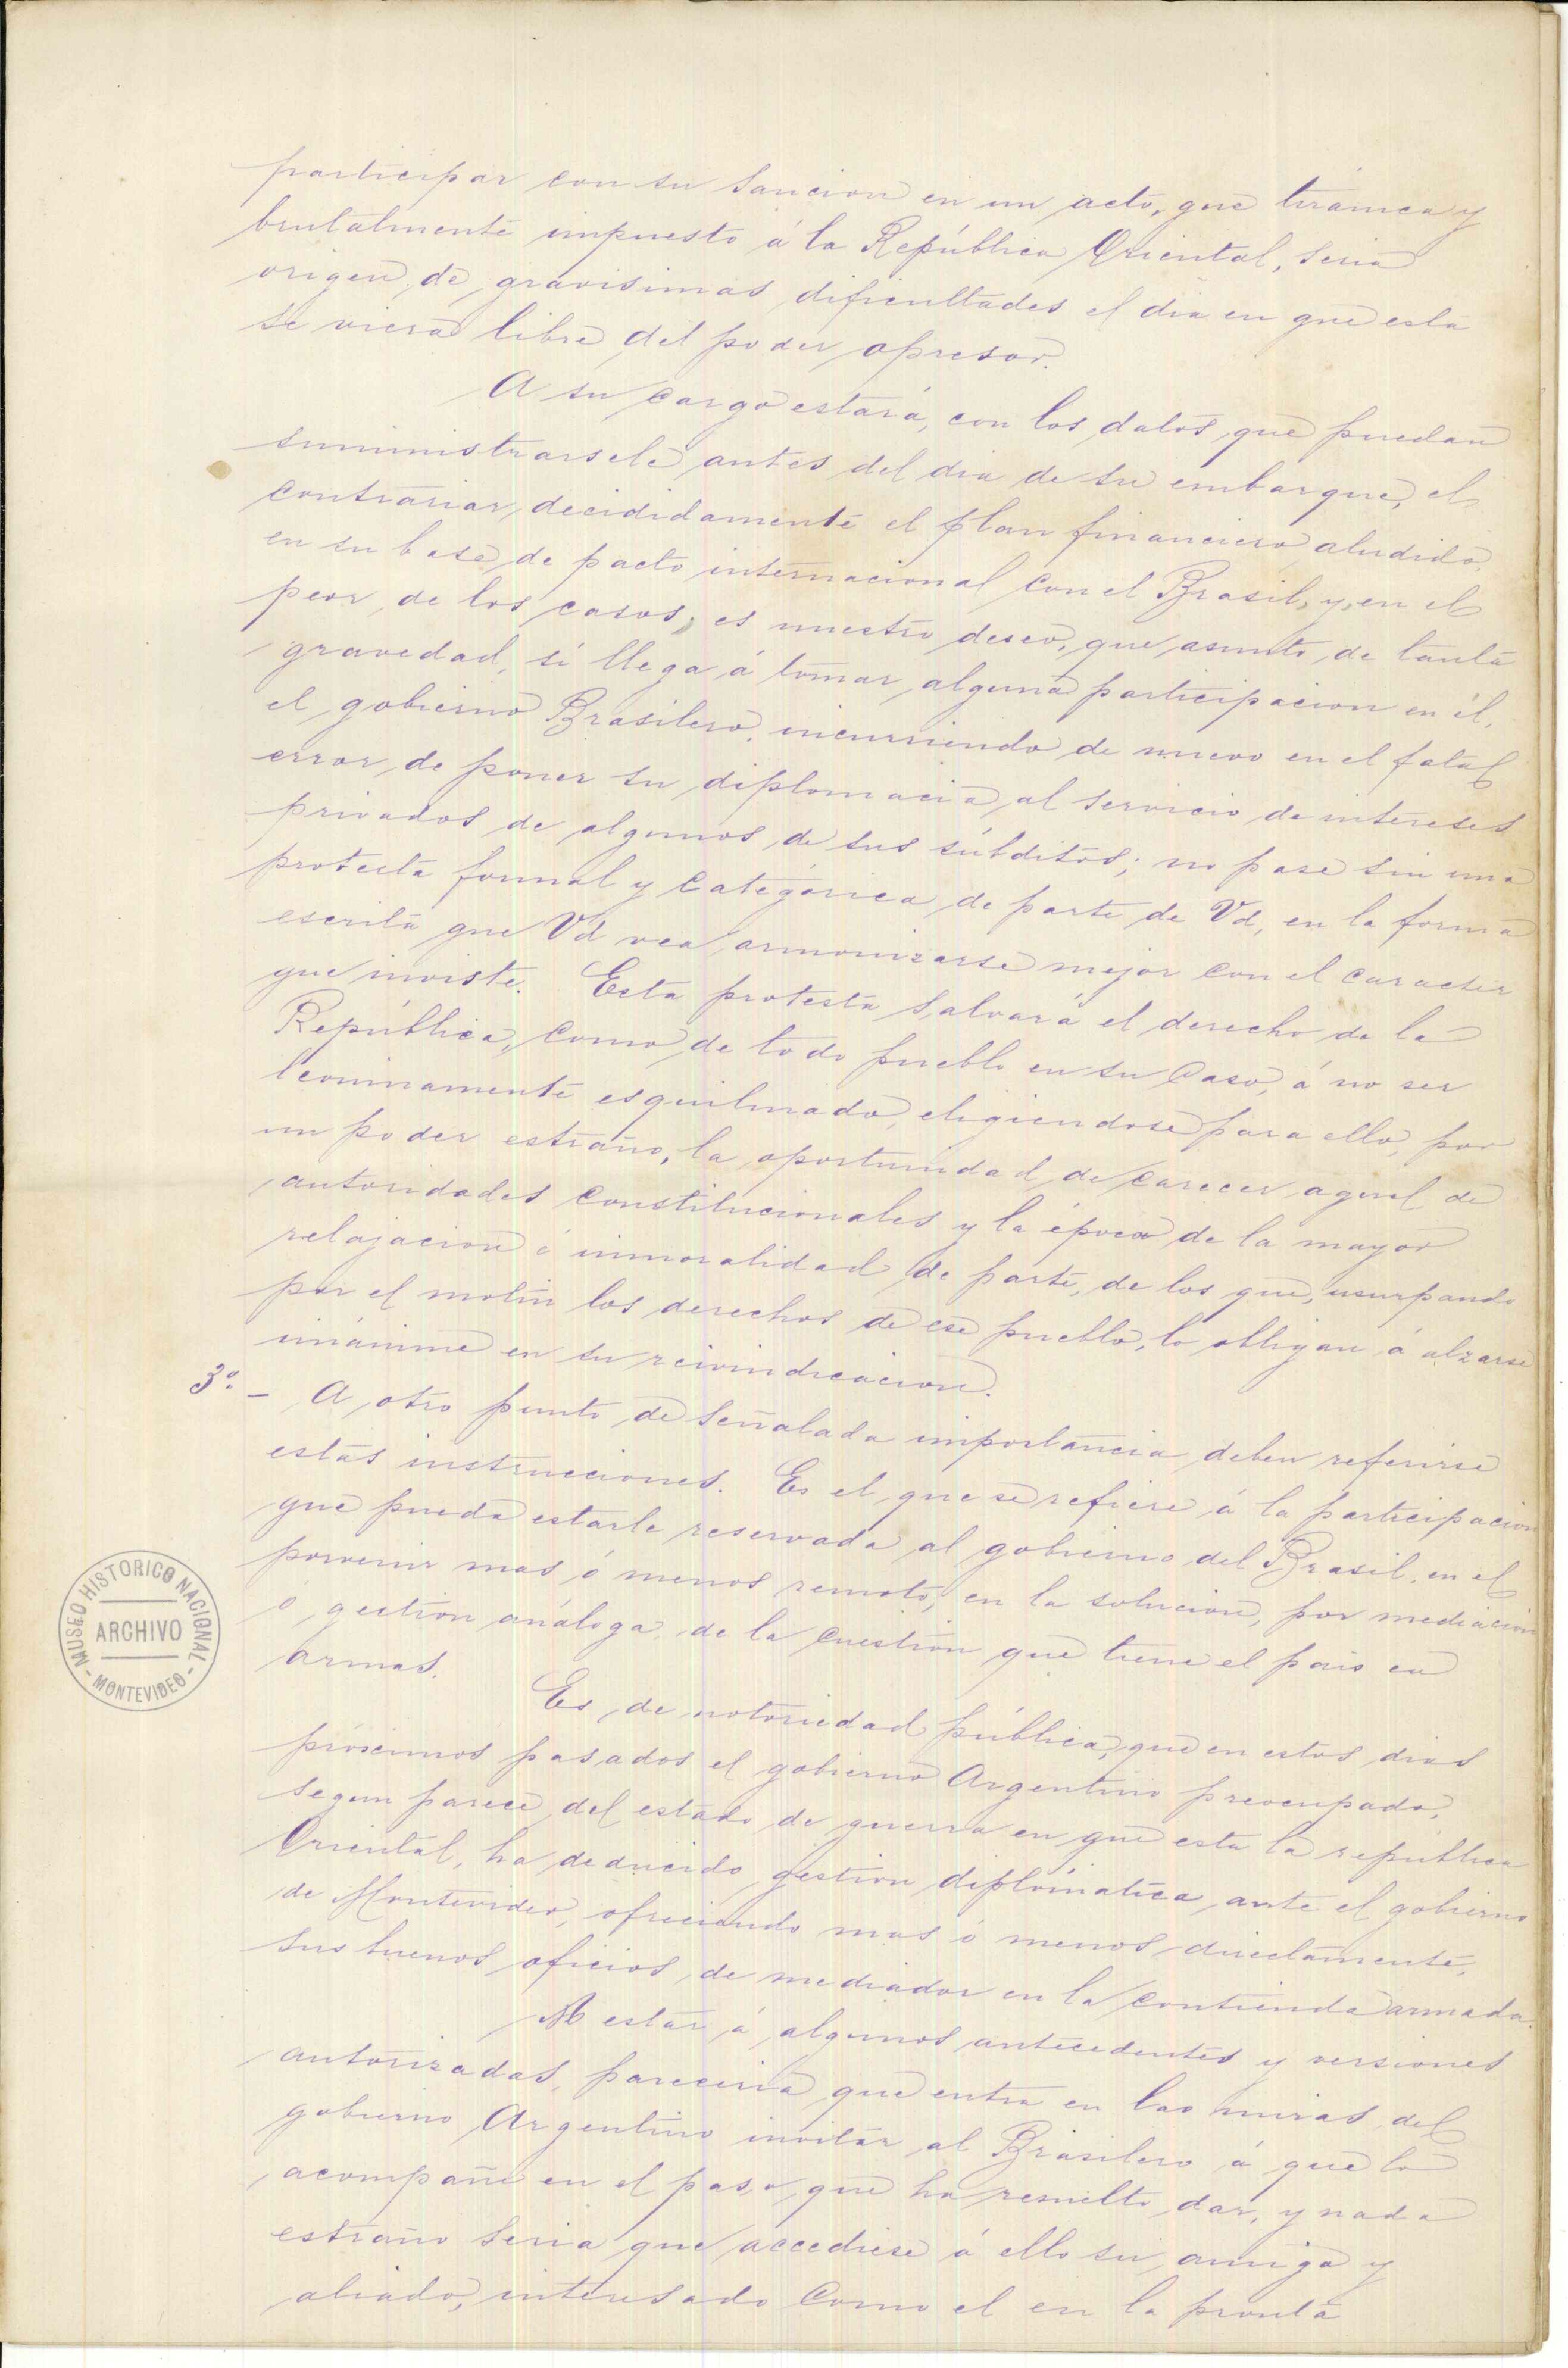 participar con su sancion en un acto, que tiránica y
brutalmente impuesto á la República Oriental, seria
origen de gravisimas dificultades el dia en que esta
se viera libre del poder opresor.
A su cargo estará, con los datos que puedan
suministrarsele antes del dia de su embarque, el
contrariar decididamente el plan financiero aludido,
en su base de pacto internacional con el Brasil, y, en el
peor de los casos, es nuestro deseo, que asunto de tanta
gravedad, si llega á tomar alguna participacion en él,
el gobierno Brasilero, incurriendo de nuevo en el fatal
error de poner su diplomacia al servicio de intereses
privados de algunos de sus súbditos; no pase sin una
protesta formal y categórica de parte de Vd, en la forma
escrita que Vd vea armonizarse mejor con el caracter
que inviste. Esta protesta salvará el derecho de la
República, como de todo pueblo en su caso, á no ser
leoninamente esquilmado, eligiendose para ello, por
un poder estraño, la oportunidad de carecer aquel de
autoridades constitucionales y la época de la mayor
relajacion é inmoralidad de parte de los que, usurpando
por el motin los derechos de ese pueblo, lo obligan á alzarse
unánime en su reivindicacion.
3º. - A otro punto de señalada importancia deben referirse
estas instrucciones. Es el que se refiere á la participacion
que pueda estarle reservada al gobierno del Brasil, en el
porvenir mas ó menos remoto, en la solucion, por mediacion
ó gestion análoga, de la cuestion que tiene el pais en
armas.
Es de notoriedad pública, que en estos dias
próximos pasados el gobierno Argentino preocupado,
segun parece, del estado de guerra en que esta la republica
Oriental, ha deducido gestion diplomática ante el gobierno
de Montevideo, ofreciendo mas ó menos directamente,
sus buenos oficios de mediador en la contienda armada.
A estar á algunos antecedentes y versiones
autorizadas, pareceria que entra en las miras del
gobierno Argentino invitar al Brasilero á que lo
acompañe en el paso que ha resuelto dar, y nada
estraño seria que accediese á ello su amigo y
aliado, interesado como el en la pronta
MUSEO HISTORICO NACIONAL
ARCHIVO
- MONTEVIDEO -